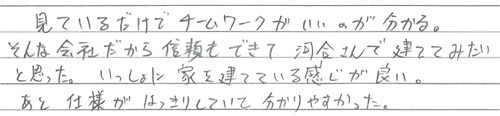 見ているだけでチームワークがいいのが分かる。
そんな会社だから信頼もできて河合さんで建ててみたい
と思った。いっしょに家を建てている感じが良い。
あと仕様がはっきりしていて分かりやすかった。